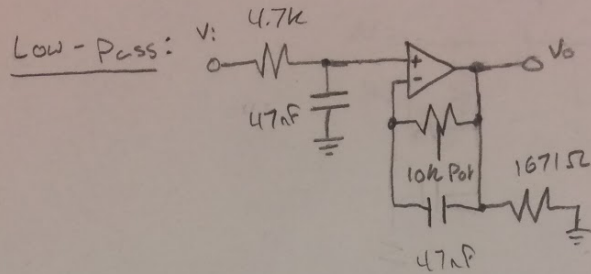 Low-Pass: Vi 4.7k
+
-
Vo
47nF
10k Pot
1671Ω
47nF